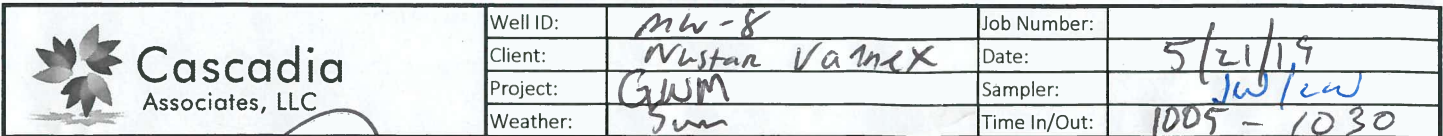 Cascadia
Associates, LLC
Well ID: MW-8 Job Number:
Client: Nustar Vannex Date: 5/21/19
Project: GWM Sampler: JW/
Weather: Sun Time In/Out: 1005 - 1030